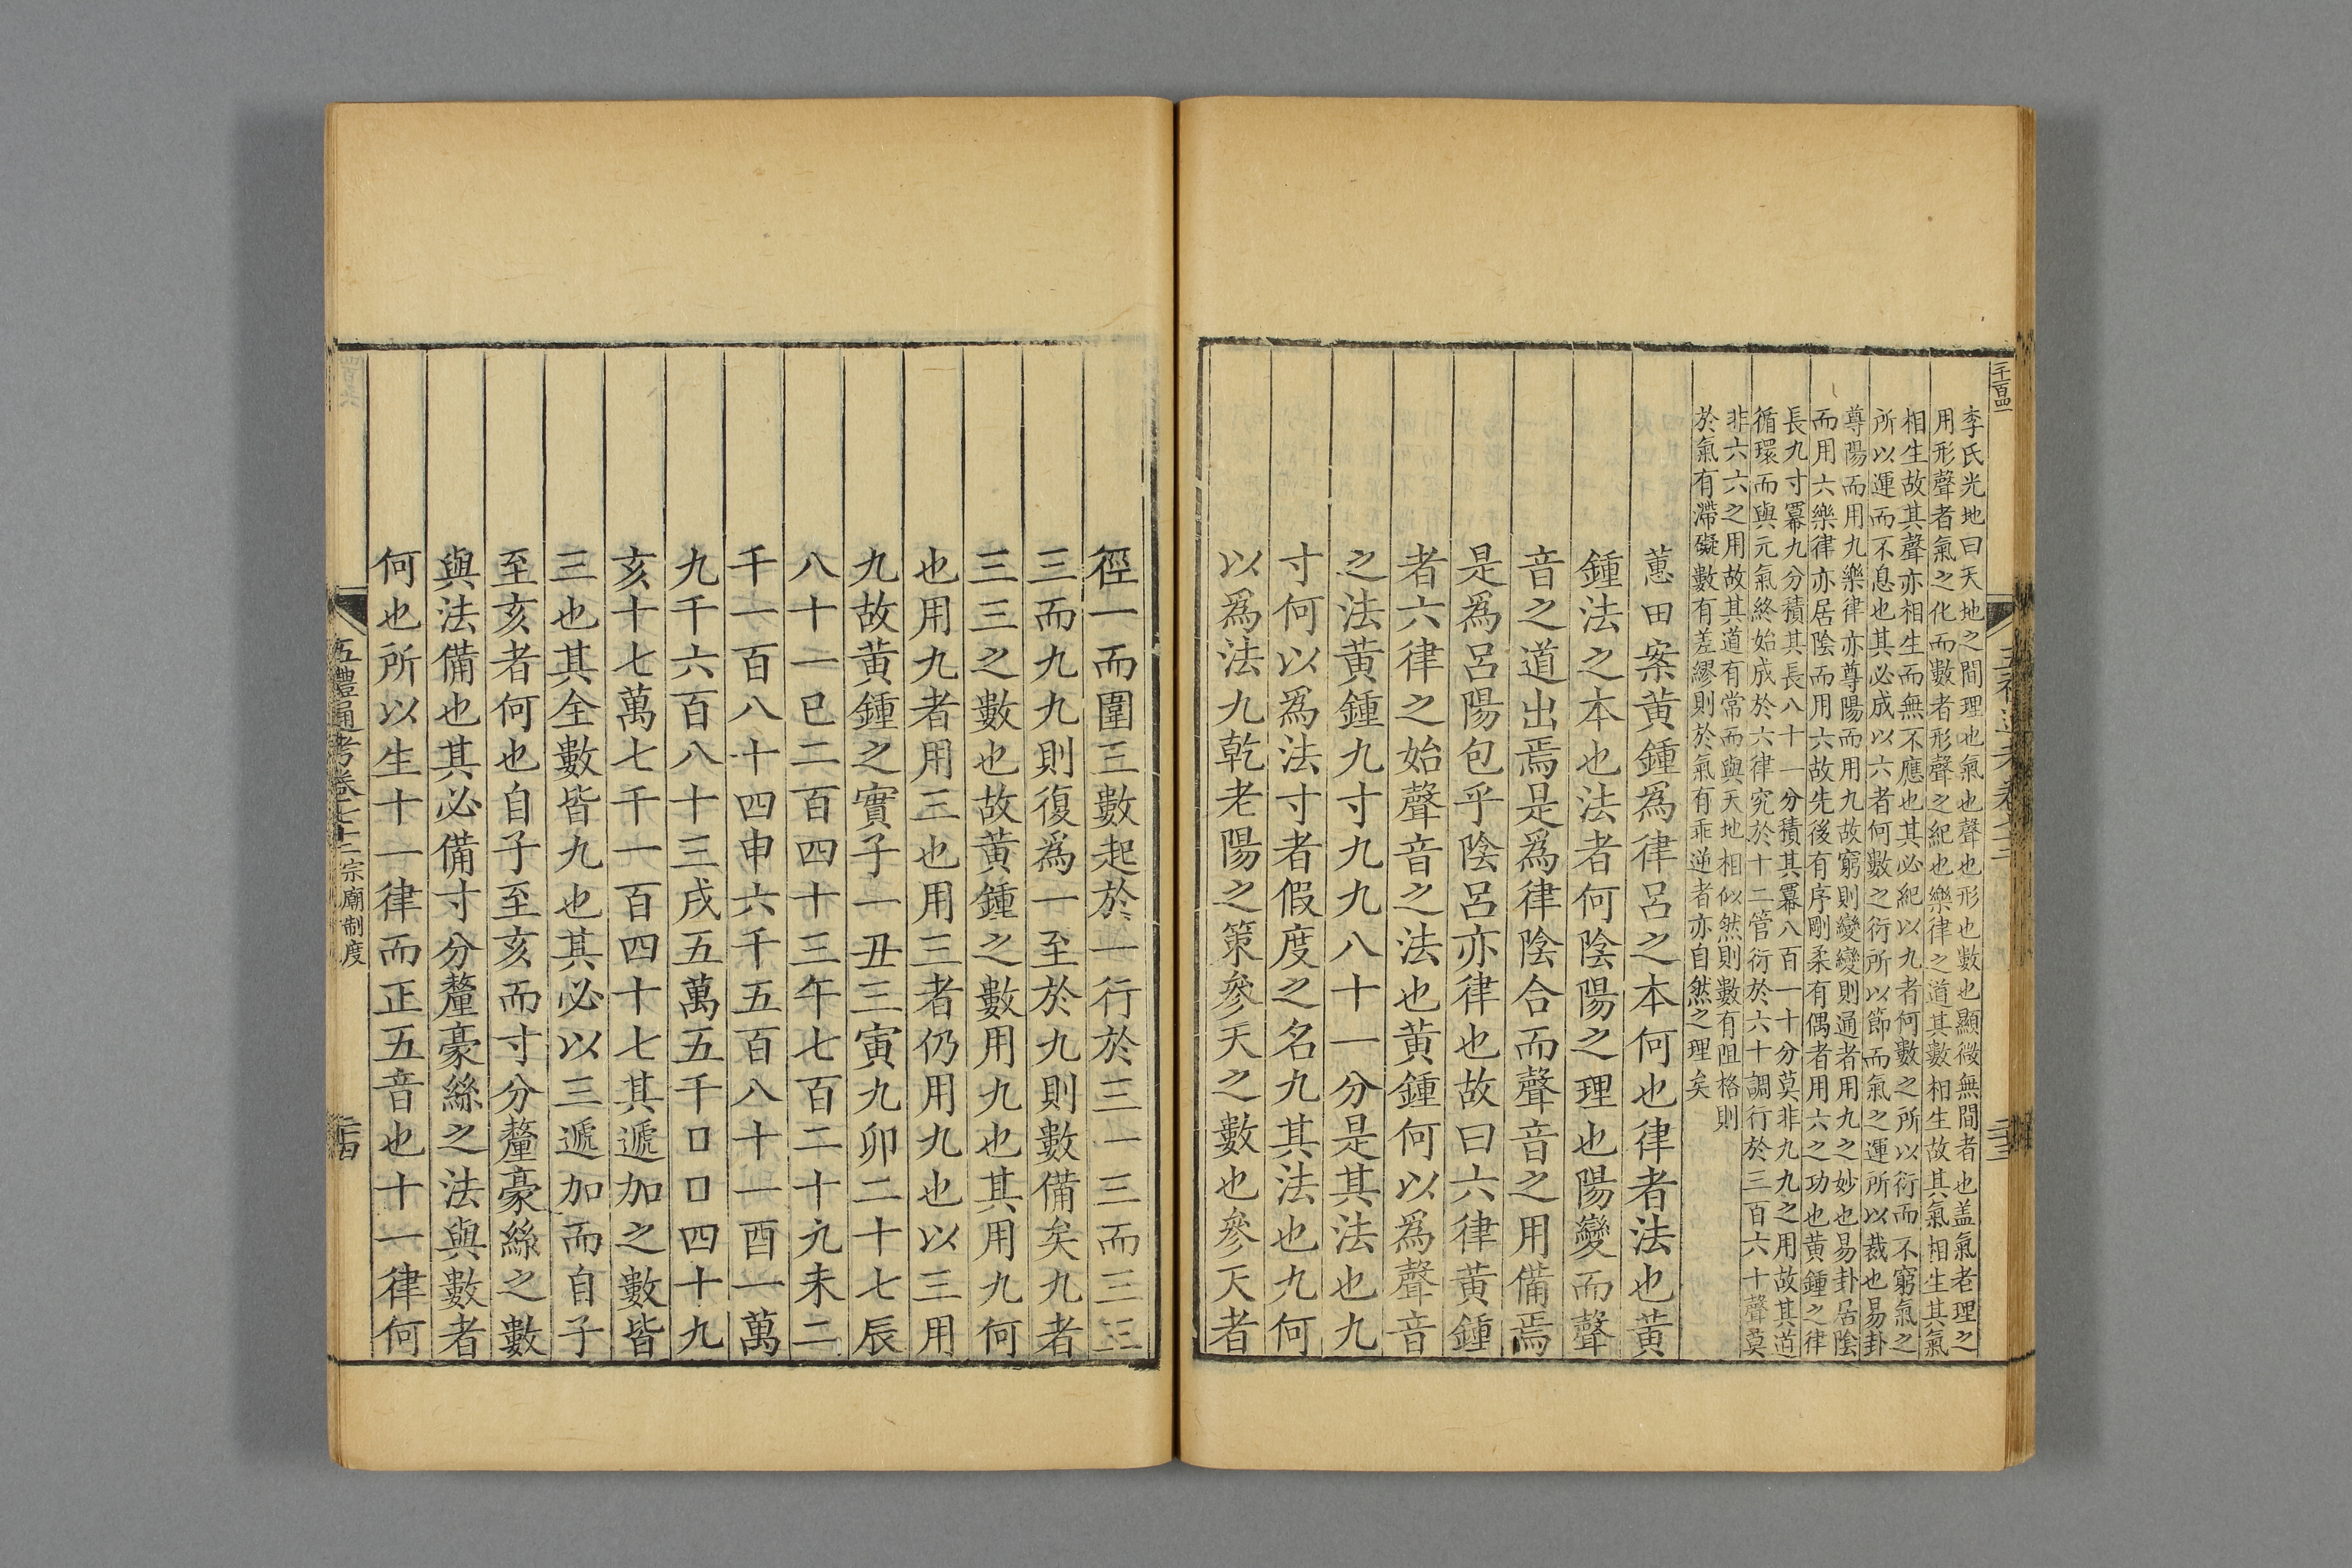 李氏光地曰天地之間理也氣也聲也形也數也顯微無間者也盖氣者理之
用形聲者氣之化而數者形聲之紀也樂律之道其數相生故其氣相生其氣
相生故其聲亦相生而無不應也其必紀以九者何數之所以衍而不窮氣之
所以運而不息也其必成以六者何數之衍所以節而氣之運所以裁也易卦
尊陽而用九樂律亦尊陽而用九故窮則變變則通者用九之妙也易卦居陰
而用六樂律亦居陰而用六故先後有序剛柔有偶者用六之功也黄鍾之律
長九寸冪九分積其長八十一分積其冪八百一十分莫非九九之用故其道
循環而與元氣終始成於六律究於十二管衍於六十調行於三百六十聲莫
非六六之用故其道有常而與天地相似然則數有阻格則
於氣有滯礙數有差繆則於氣有乖逆者亦自然之理矣
蕙田案黄鍾爲律呂之本何也律者法也黄
鍾法之本也法者何陰陽之理也陽變而聲
音之道出焉是爲律陰合而聲音之用備焉
是爲呂陽包乎陰呂亦律也故曰六律黄鍾
者六律之始聲音之法也黄鍾何以爲聲音
之法黄鍾九寸九九八十一分是其法也九
寸何以爲法寸者假度之名九其法也九何
以爲法九乾老陽之策參天之數也參天者
徑一而圍三數起於一行於三一三而三三
三而九九則復爲一至於九則數備矣九者
三三之數也故黄鍾之數用九也其用九何
也用九者用三也用三者仍用九也以三用
九故黄鍾之實子一丑三寅九卯二十七辰
八十一巳二百四十三午七百二十九未二
千一百八十四申六千五百八十一酉一萬
九千六百八十三戌五萬五千口口四十九
亥十七萬七千一百四十七其遞加之數皆
三也其全數皆九也其必以三遞加而自子
至亥者何也自子至亥而寸分釐豪絲之數
與法備也其必備寸分釐豪絲之法與數者
何也所以生十一律而正五音也十一律何
五禮通考卷七十二 宗廟制度
二十四